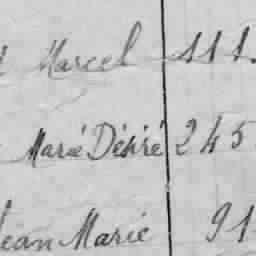 Marcel 111.
Marié Désiré 245
Jean Marie 91